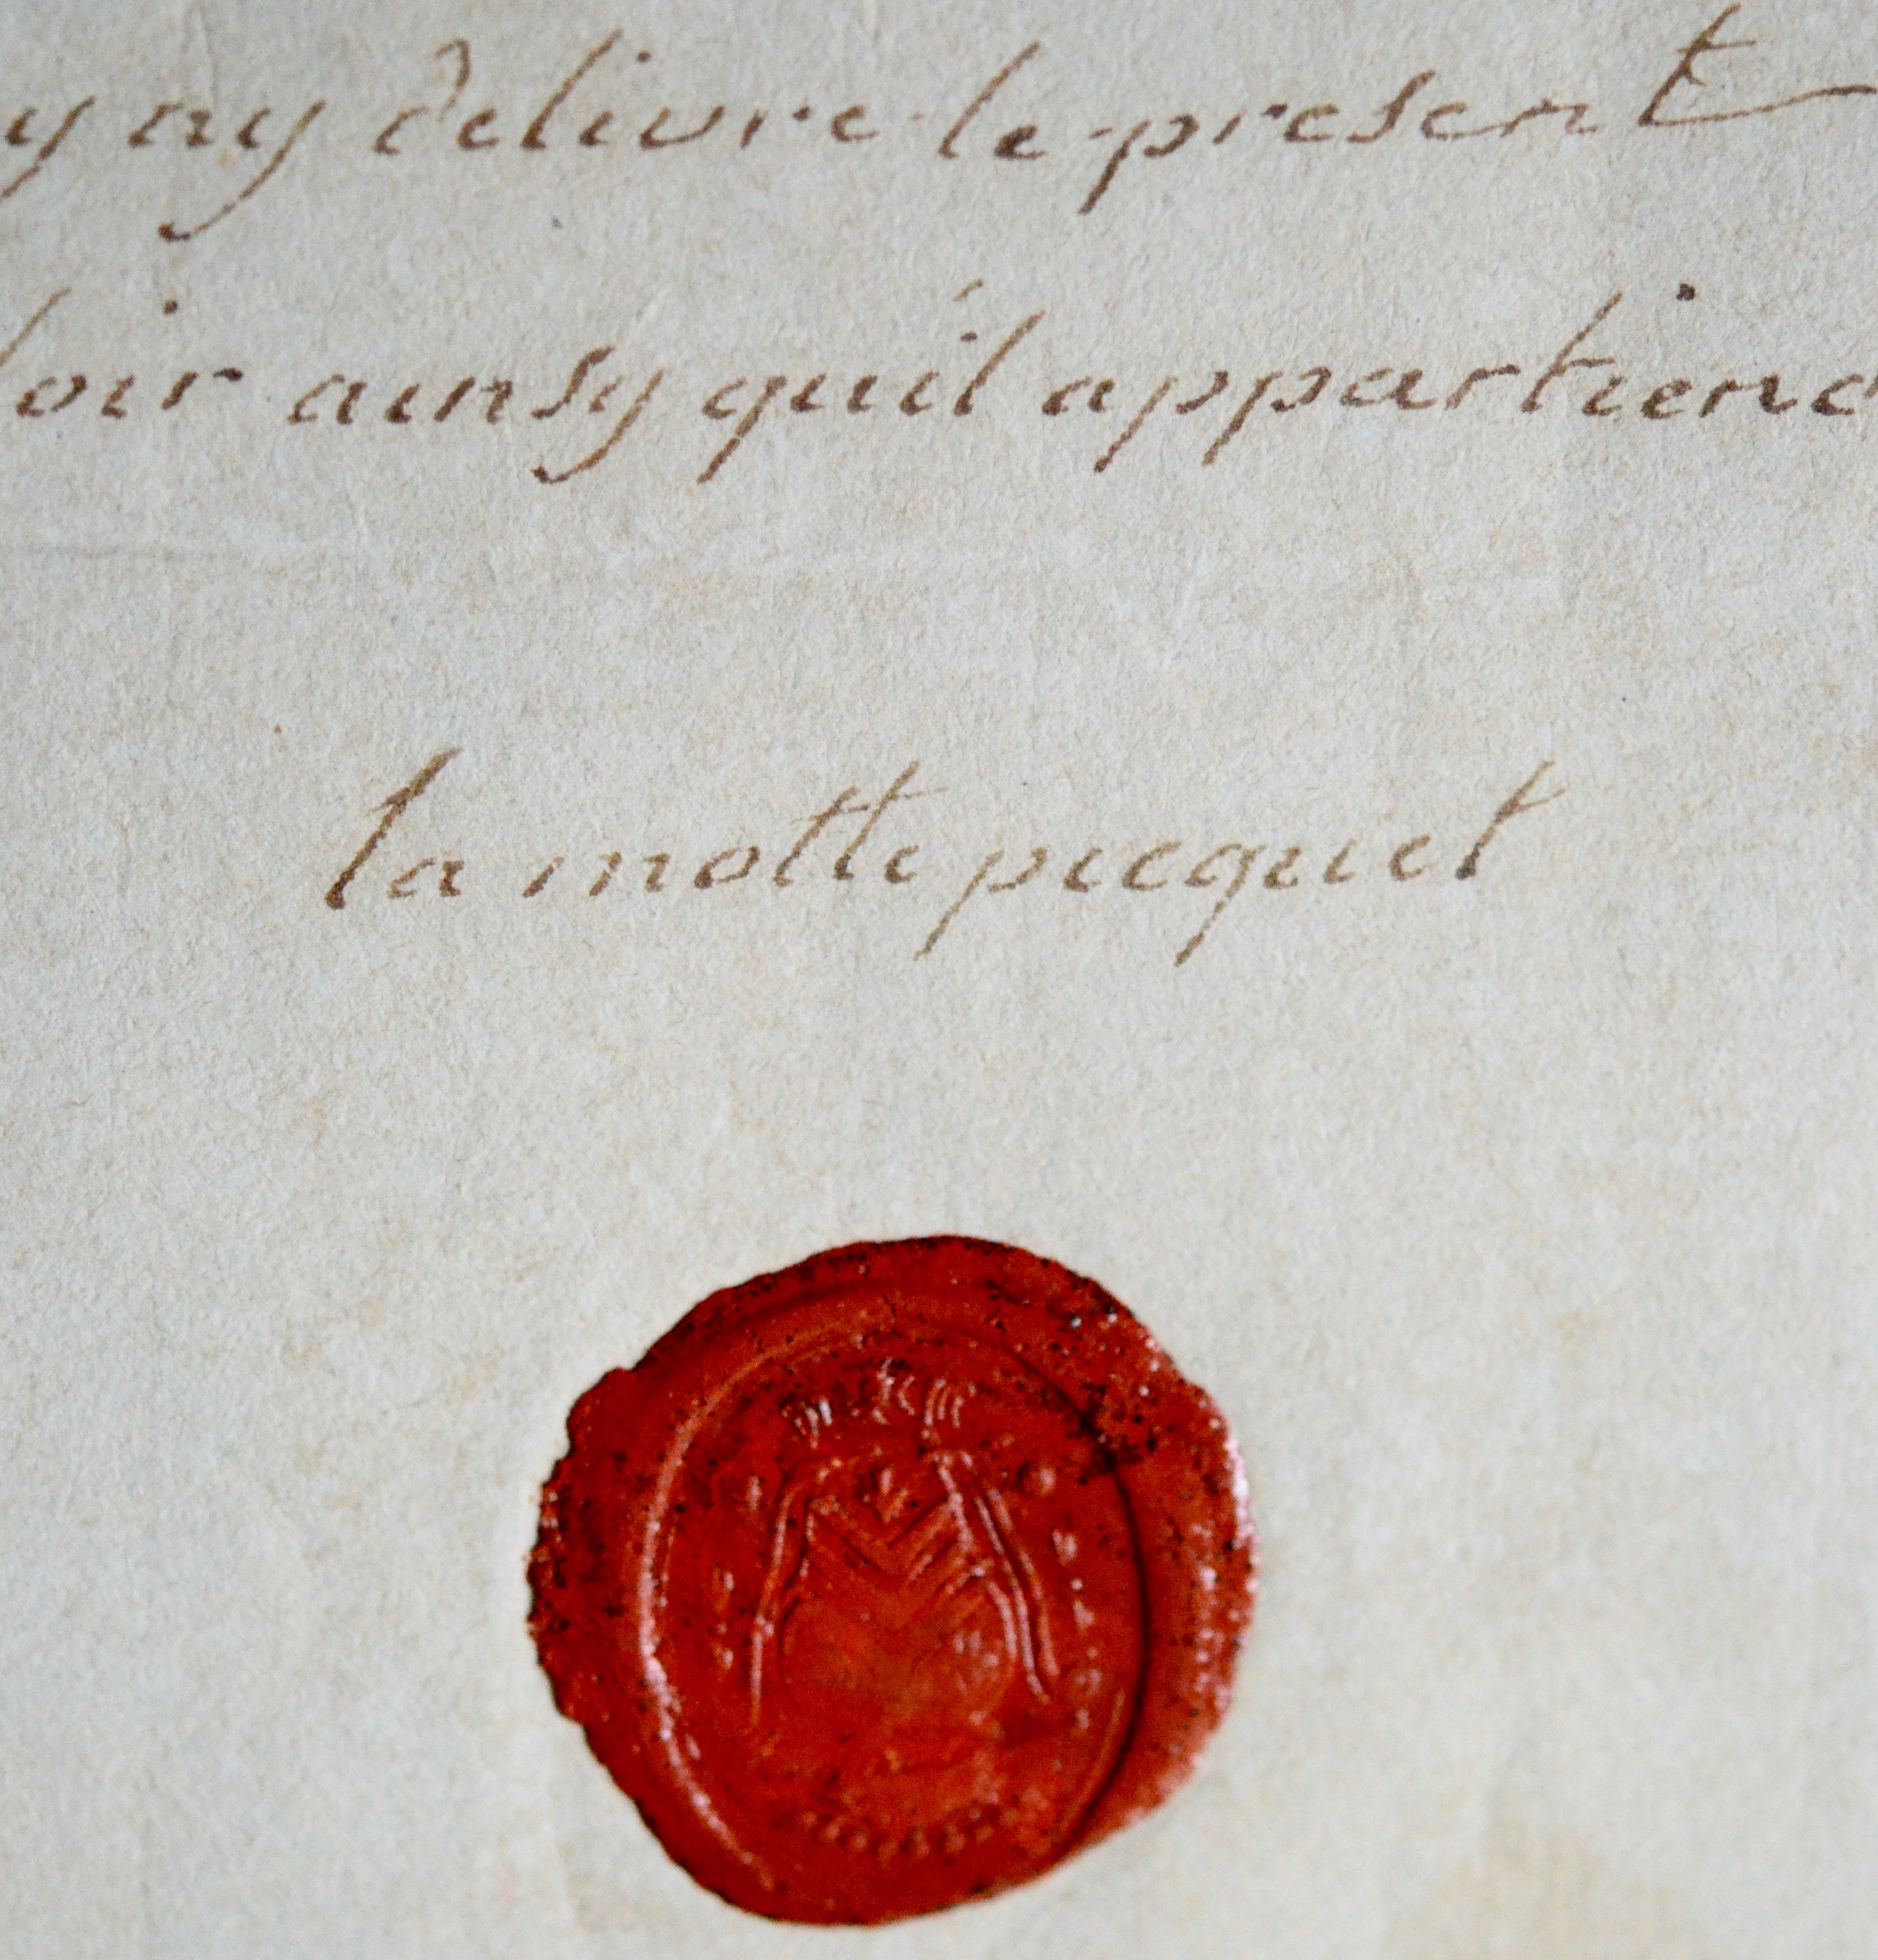 y ay délivre le present
loir ainsy qu'il appartiend
la motte picquet